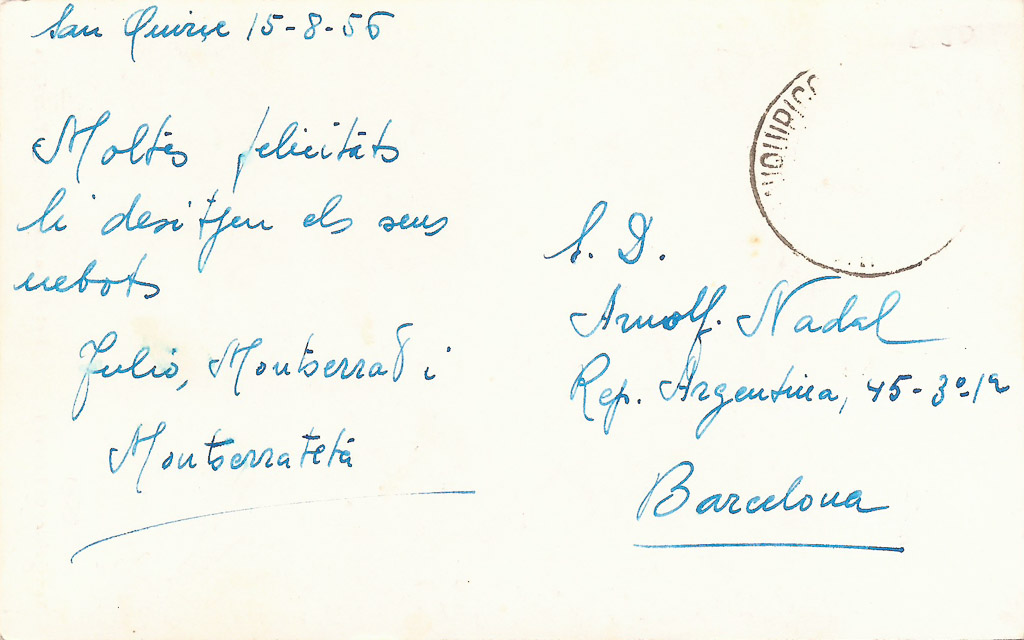 San Quirze 15-8-56
Moltes felicitats
li desitjen els seus
nebots
Julio, Montserrat i
Montserrateta
S. D.
Arnolf. Nadal
Rep. Argentina, 45-3º-1ª
Barcelona